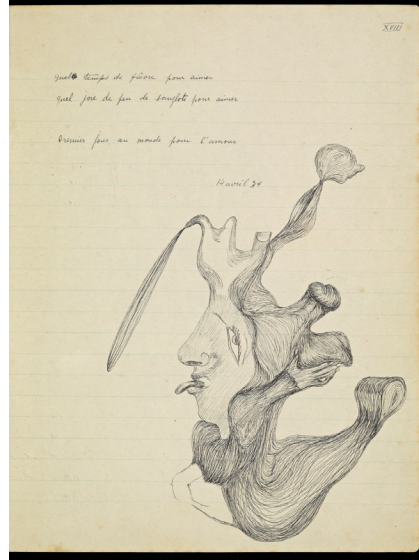 XVIII
quel temps de fièvre pour aimer
quel joie de feu de sanglots pour aimer
Premier jour au monde pour l'amour
14 avril 34